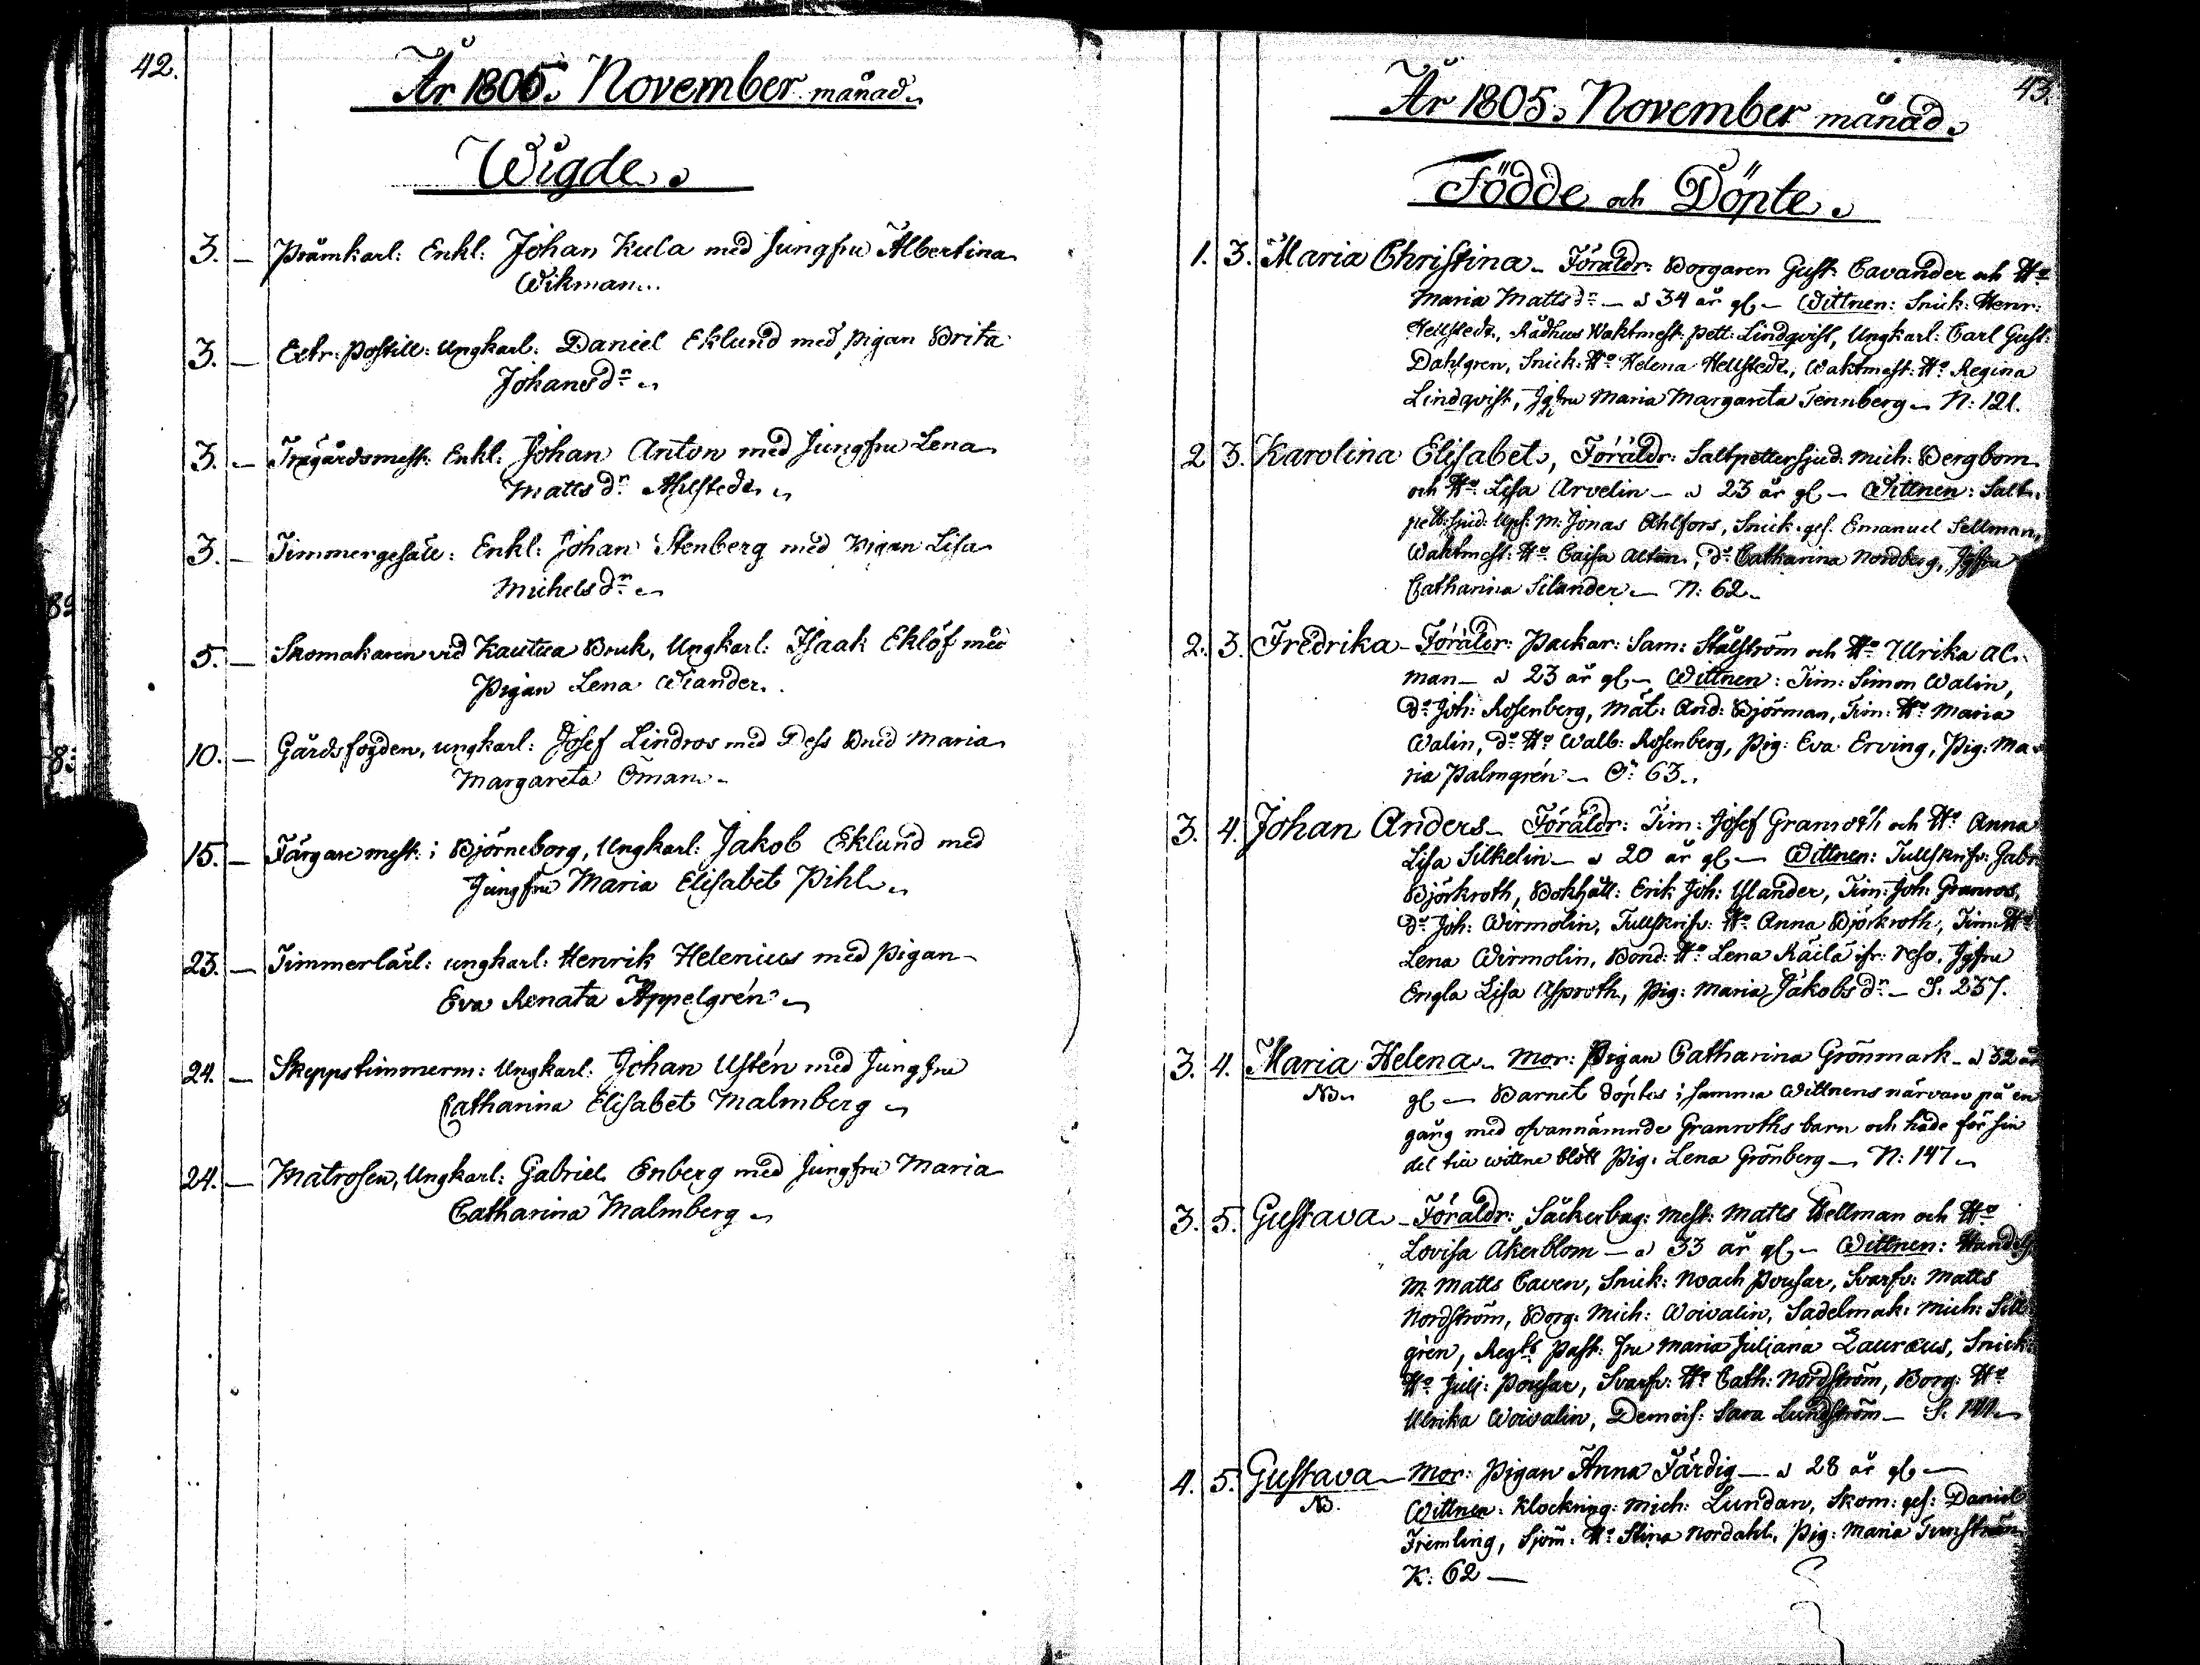 42.
År 1805. November månad.
Wigde.
3. — Pråmkarl: Enkl: Johan Kula med Jungfru Albertina
Wikman.
3. — Extr: Postill: Ungkarl: Daniel Eklund med pigan Brita
Johansdr.
3. — Trägårdsmest: Enkl: Johan Anton med Jungfru Lena
Mattsdr. Ahlstedt.
3. — Timmergesäll: Enkl: Johan Stenberg med Pigan Lisa
Michelsdr.
5. — Skomakaren vid Kautua Bruk, Ungkarl: Isaak Eklöf med
Pigan Lena Wiander.
10. — Gårdsfogden, ungkarl: Josef Lindros med Dess Brud Maria
Margareta Öman.
15. — Färgaremest: i Björneborg, Ungkarl: Jakob Eklund med
Jungfru Maria Elisabet Pihl.
23. — Timmerlärl: ungkarl: Henrik Helenius med pigan
Eva Renata Appelgrén.
24. — Skeppstimmerm: Ungkarl: Johan Ustén med Jungfru
Catharina Elisabet Malmberg
24. — Matrosen, Ungkarl: Gabriel Enberg med Jungfru Maria
Catharina Malmberg
43.
År 1805. November månad.
Födde och Döpte.
1. 3. Maria Christina — Föräldr: Borgaren Gust: Cavander och Ho
Maria Mattsdr — 34 år gl — Wittnen: Snick: Henr:
Hellstedt, Rådhus Waktmest: Pett: Lindqvist, Ungkarl: Carl Gust:
Dahlgren, Snick: Ho Helena Hellstedt, Waktmest: Ho Regina
Lindqvist, Jgfru Maria Margareta Tennberg — N: 121.
2 3. Karolina Elisabet, Föräldr: Saltpettersjud: Mich: Bergbom
och Ho Lisa Arvelin — 23 år gl — Wittnen: Salt-
pett: sjud: Ups: M: Jonas Ahlfors, Snick: ges. Emanuel Sellman,
Waktmest: Ho Caisa Alten, Do Catharina Nordberg, Jgfru
Catharina Silander — N: 62.
2. 3. Fredrika — Föräldr: Packar: Sam: Stålström och Ho Ulrika Al-
man — 23 år gl — Wittnen: Tim: Simon Walin,
Do Joh: Rosenberg, Mät: And: Björman, Tim: Ho Maria
Walin, Do Ho Walb: Rosenberg, Pig: Eva Erving, Pig: Ma-
ria Palmgrén — 63.
3. 4. Johan Anders — Föräldr: Tim: Josef Granroth och Ho Anna
Lisa Silkelin — 20 år gl — Wittnen: Tullskrifv: Gabr
Björkroth, Bokhåll: Erik Joh: Ylander, Tim: Joh: Granros,
Do Joh: Wirmolin, Tullskrifv: Ho Anna Björkroth, Tim: Ho
Lena Wirmolin, Bond: Ho Lena Räilä ifr: Reso, Jgfru
Engla Lisa Asproth, Pig: Maria Jakobsdr — S: 237.
3. 4. Maria Helena — Mor: Pigan Catharina Grönmark — 32 år
NB. gl — Barnet döptes i samma Wittnens närvaro på en
gång med ofvannämnde Granroths barn och hade för sin
del till wittne blott Pig: Lena Grönberg — N: 147
3. 5. Gustava — Föräldr: Såckerbag: Mest: Matts Hellman och Ho
Lovisa Åkerblom — 33 år gl — Wittnen: Handels
M: Matts Caven, Snick: Noach Pousar, Svarfv: Matts
Nordström, Borg: Mich: Woivalin, Sadelmak: Mich: Sill
grén, Regts Past: fru Maria Juliana Lauræus, Snick:
Ho Juli: Pousar, Svarfv: Ho Cath: Nordström, Borg: Ho
Ulrika Woivalin, Demois: Sara Lundström —
4. 5. Gustava — Mor: Pigan Anna Färdig — 28 år gl —
NB. Wittnen: Klockring: Mich: Lundan, Skom: ges: Daniel
Fremling, Sjöm: Ho Stina Nordahl, Pig: Maria Tunström
K: 62 —